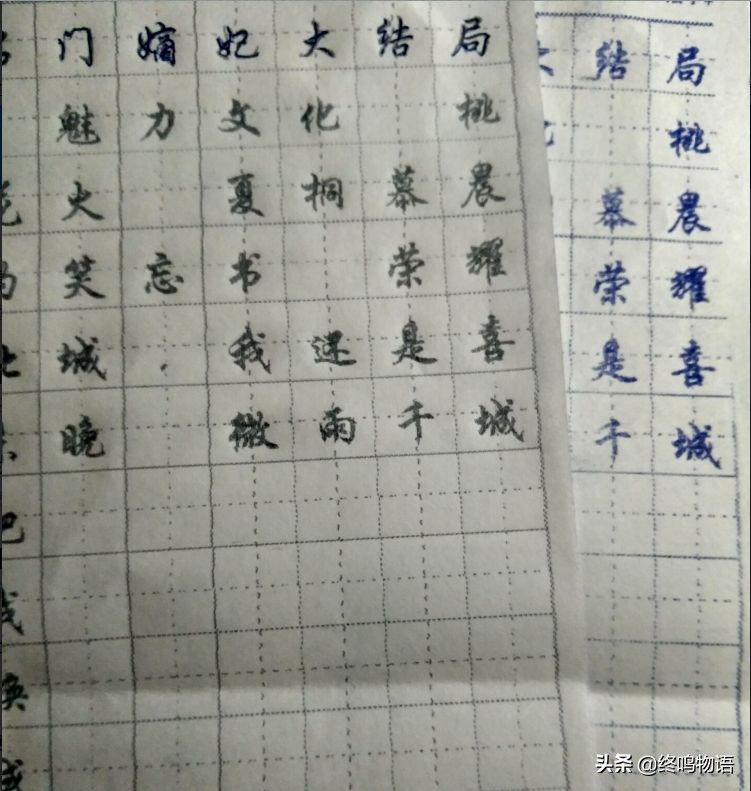 门嫡妃大结局
魅力文化 桃
火 夏桐慕晨
笑忘书 荣耀
城 . 我还是喜
晚 微雨千城
结局
桃
慕晨
荣耀
是喜
千城
头条 @终鸣物语